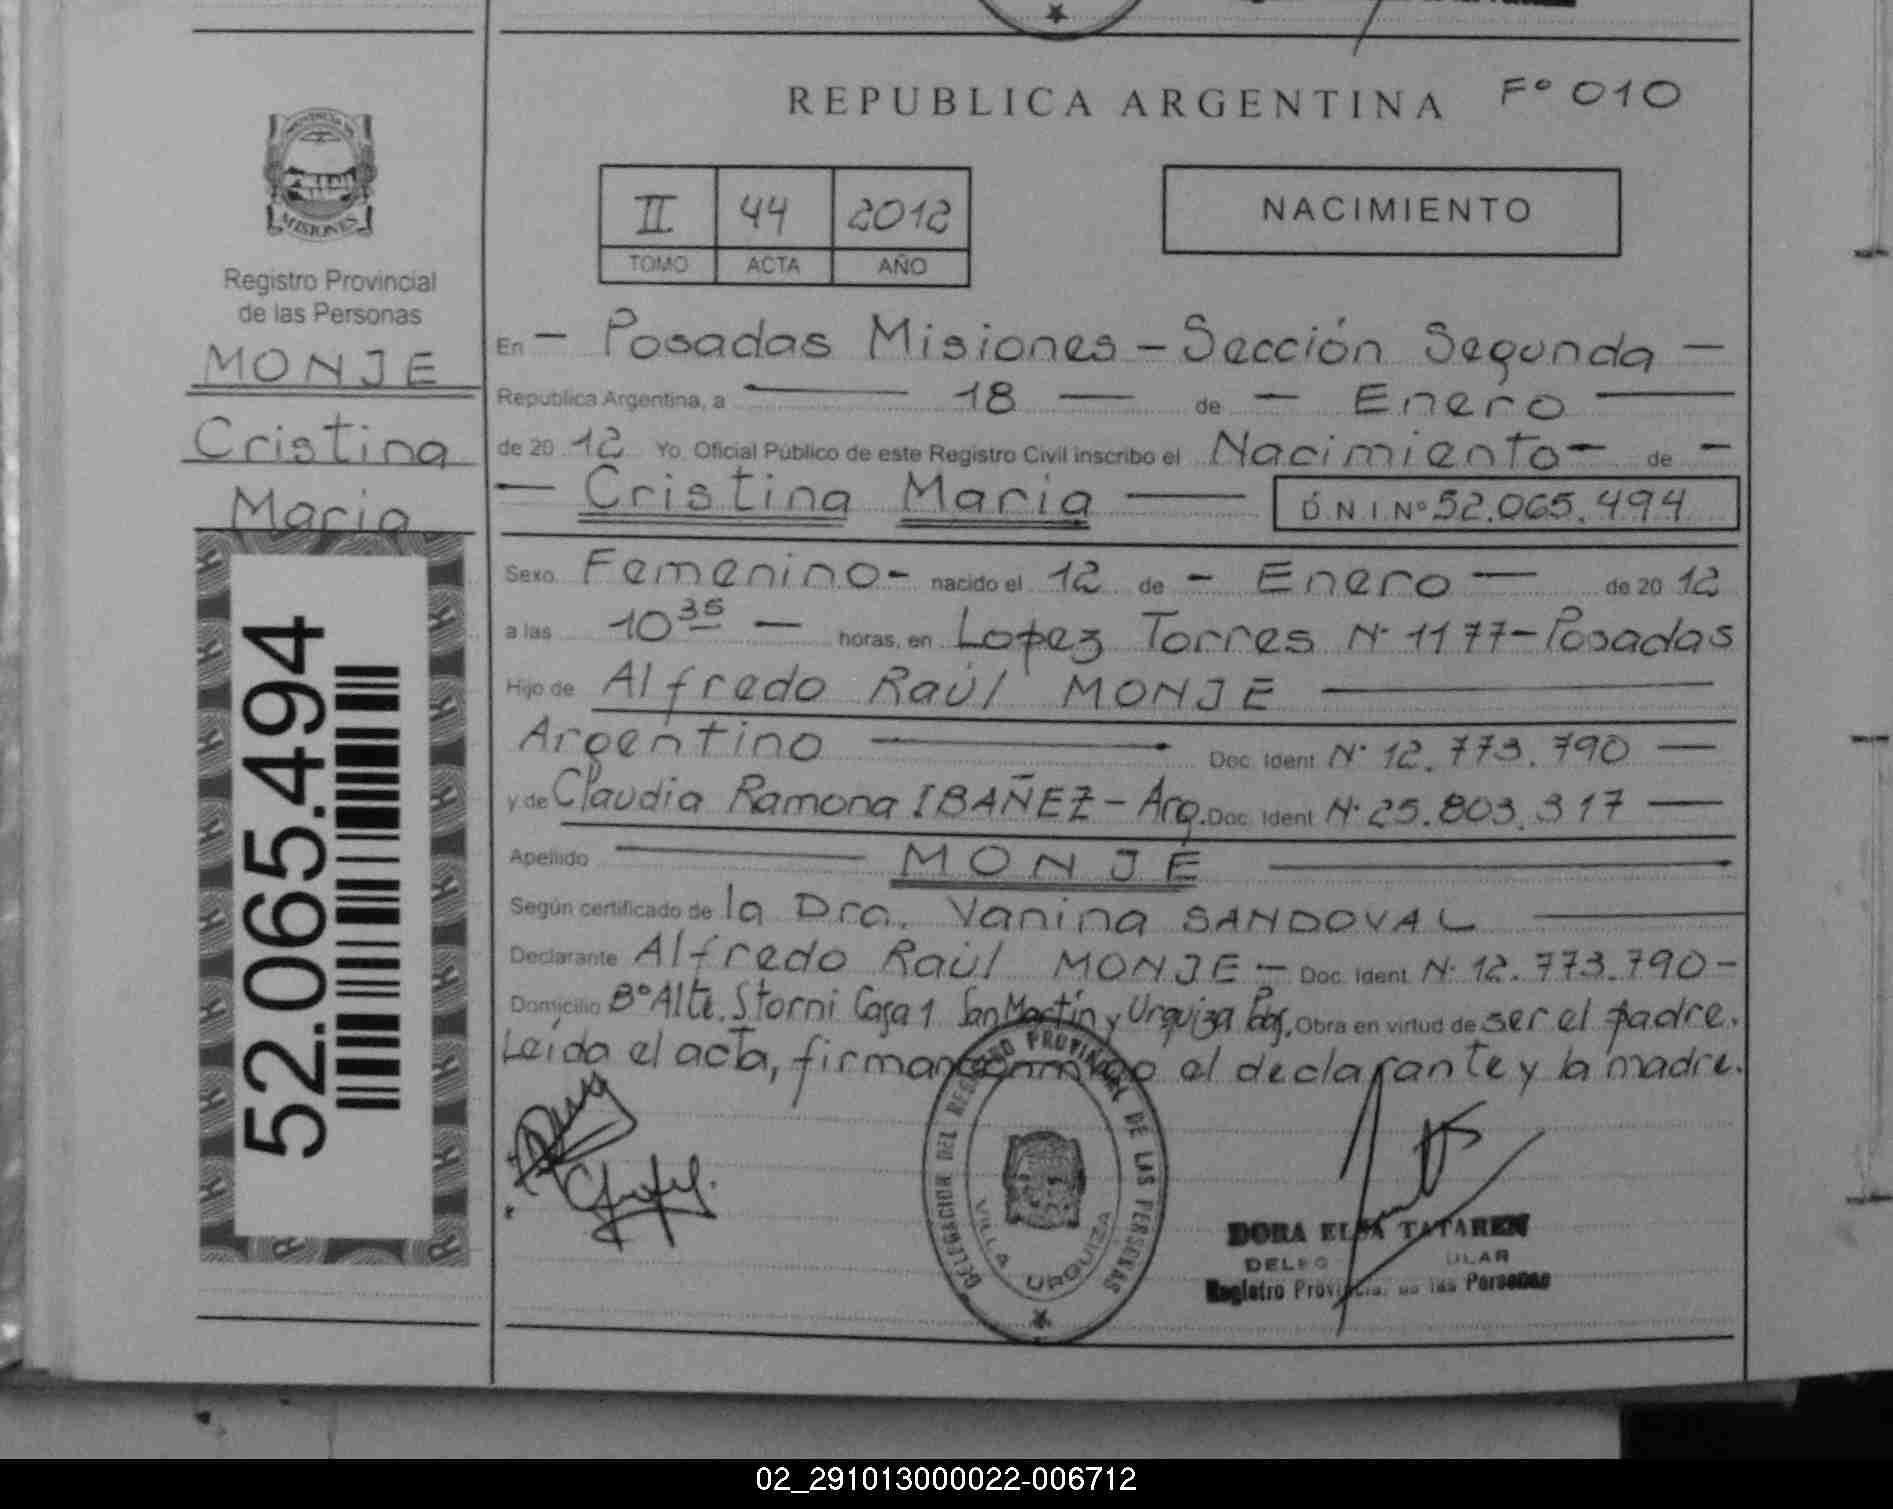 REPUBLICA ARGENTINA Fº 010
PROVINCIA DE
MISIONES
Registro Provincial
de las Personas
MONJE
Cristina
Maria
52.065.494
II 44 2012
TOMO ACTA AÑO
NACIMIENTO
En - Posadas Misiones - Sección Segunda -
Republica Argentina, a 18 de - Enero
de 20 12 Yo, Oficial Público de este Registro Civil inscribo el Nacimiento - de -
Cristina Maria D.N.I. Nº 52.065.494
Sexo Femenino - nacido el 12 de - Enero - de 20 12
a las 10 35 - horas, en Lopez Torres Nº 1177 - Posadas
Hijo de Alfredo Raúl MONJE
Argentino Doc. Ident. Nº 12.773.790
y de Claudia Ramona IBAÑEZ - Arg. Doc. Ident. Nº 25.803.317
Apellido MONJE
Según certificado de la Dra. Vanina SANDOVAL
Declarante Alfredo Raúl MONJE - Doc. Ident. Nº 12.773.790 -
Domicilio Bº Alte. Storni Casa 1 San Martín y Urquiza Pos. Obra en virtud de ser el padre.
Leída el acta, firman conmigo el declarante y la madre.
DELEGACION DEL REGISTRO PROVINCIAL DE LAS PERSONAS
VILLA URQUIZA
DORA ELSA TATAREN
Registro Provincial de las Personas
02_291013000022-006712